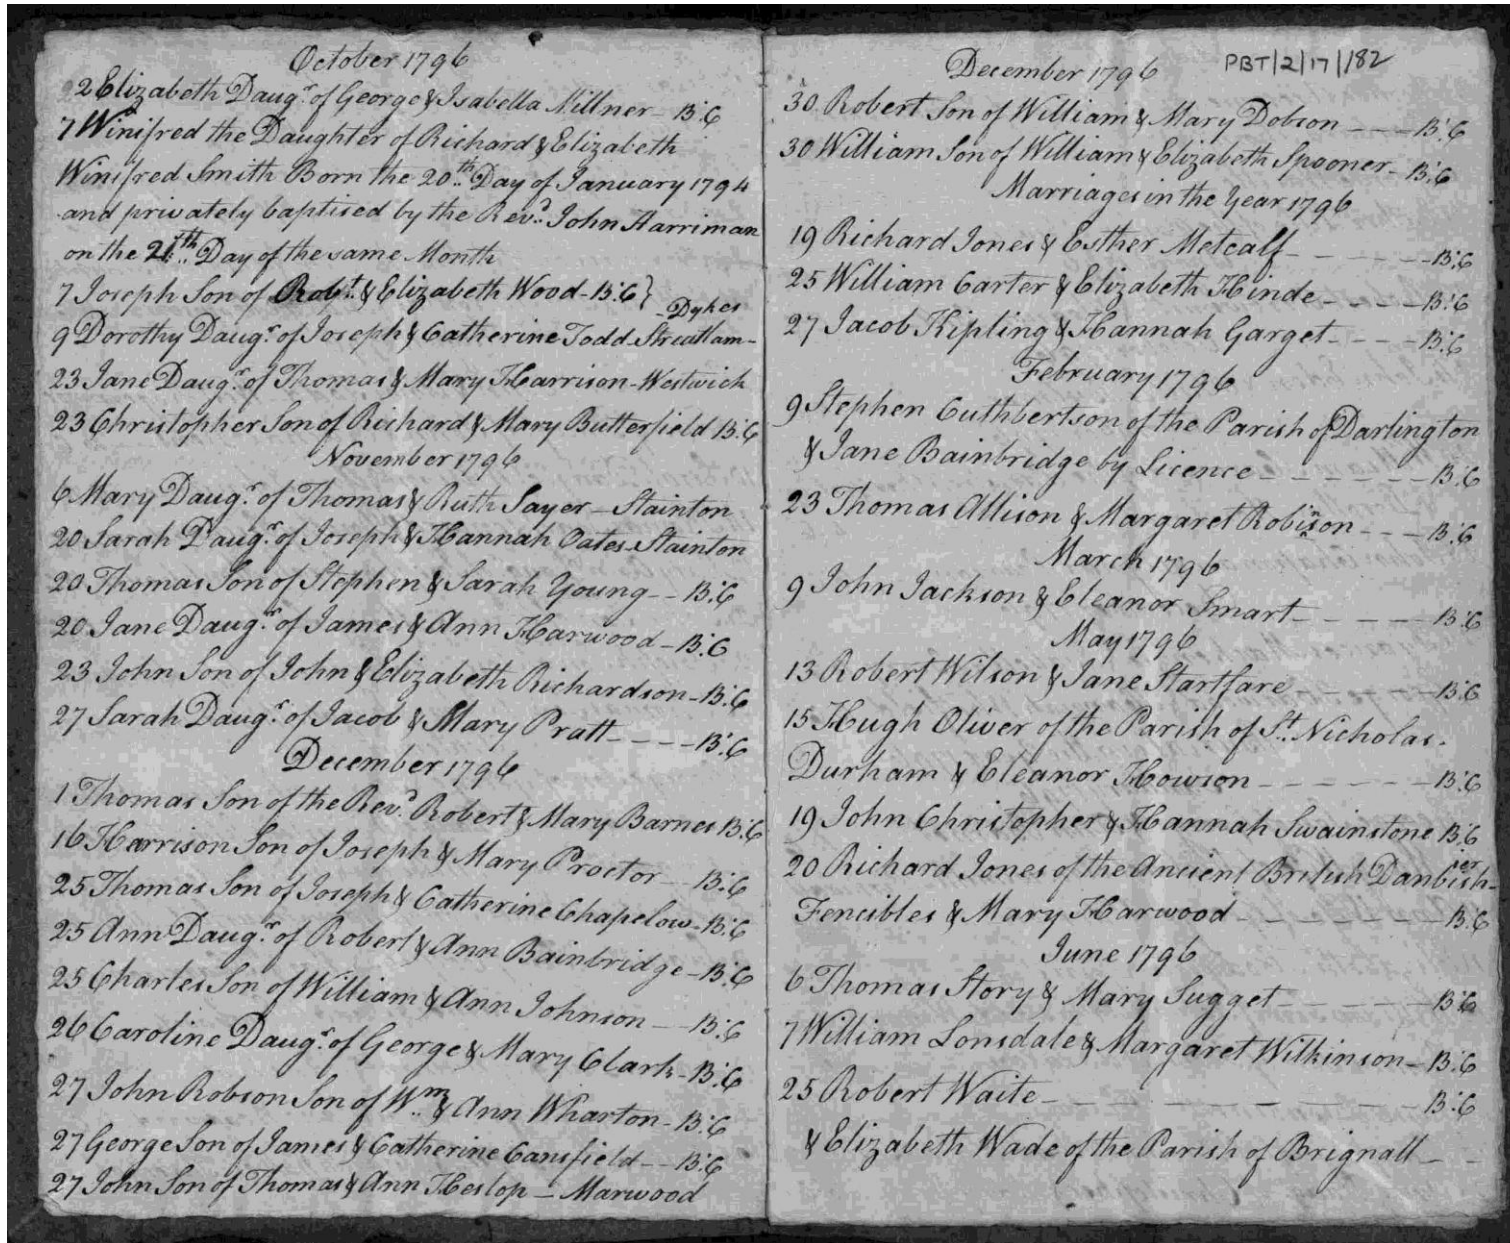 October 1796
2 Elizabeth Daugr. of George & Isabella Millner - B:C
7 Winifred the Daughter of Richard & Elizabeth
Winifred Smith Born the 20th. Day of January 1794
and privately baptised by the Revd. John Harriman
on the 21th. Day of the same Month
7 Joseph Son of Robt. & Elizabeth Wood - B:C }
- Dykes
9 Dorothy Daugr. of Joseph & Catherine Todd Streatlam -
23 Jane Daugr. of Thomas & Mary Harrison - Westwick
23 Christopher Son of Richard & Mary Butterfield B:C
November 1796
6 Mary Daugr. of Thomas & Ruth Sayer - Stainton
20 Sarah Daugr. of Joseph & Hannah Oates - Stainton
20 Thomas Son of Stephen & Sarah Young - - B:C
20 Jane Daugr. of James & Ann Harwood - B:C
23 John Son of John & Elizabeth Richardson - B:C
27 Sarah Daugr. of Jacob & Mary Pratt - - - - B:C
December 1796
1 Thomas Son of the Revd. Robert & Mary Barnes B:C
16 Harrison Son of Joseph & Mary Proctor - B:C
25 Thomas Son of Joseph & Catherine Chapelow - B:C
25 Ann Daugr. of Robert & Ann Bainbridge - B:C
25 Charles Son of William & Ann Johnson - B:C
26 Caroline Daugr. of George & Mary Clark - B:C
27 John Robson Son of Wm. & Ann Wharton - B:C
27 George Son of James & Catherine Cansfield - - B:C
27 John Son of Thomas & Ann Heslop - Marwood
PBT/2/17/182
December 1796
30 Robert Son of William & Mary Dobson - - - B:C
30 William Son of William & Elizabeth Spooner - B:C
Marriages in the Year 1796
19 Richard Jones & Esther Metcalf - - - - - - B:C
25 William Carter & Elizabeth Hinde - - - - B:C
27 Jacob Kipling & Hannah Garget - - - - B:C
February 1796
9 Stephen Cuthbertson of the Parish of Darlington
& Jane Bainbridge by Licence - - - - - - B:C
23 Thomas Allison & Margaret Robinson - - - B:C
March 1796
9 John Jackson & Eleanor Smart - - - - - B:C
May 1796
13 Robert Wilson & Jane Startfare - - - - - B:C
15 Hugh Oliver of the Parish of St. Nicholas.
Durham & Eleanor Howson - - - - - - B:C
19 John Christopher & Hannah Swainstone B:C
20 Richard Jones of the Ancient British Danbish -
Fencibles & Mary Harwood - - - - - - - B:C
June 1796
6 Thomas Story & Mary Sugget - - - - - B:C
7 William Lonsdale & Margaret Wilkinson - B:C
25 Robert Waite - - - - - - - - - - B:C
& Elizabeth Wade of the Parish of Brignall - -